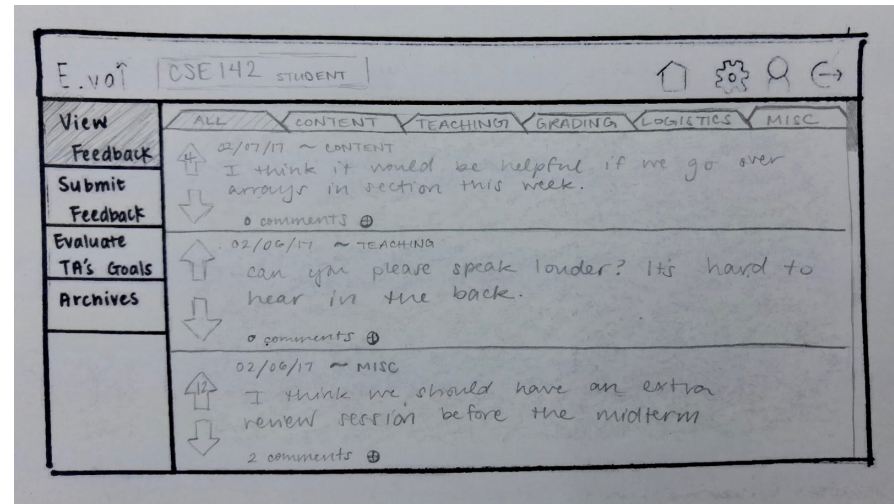 E.voi CSE 142 STUDENT
View
Feedback
Submit
Feedback
Evaluate
TA's Goals
Archives
ALL CONTENT TEACHING GRADING LOGISTICS MISC
02/07/17 ~ CONTENT
I think it would be helpful if we go over
arrays in section this week.
0 comments
02/06/17 ~ TEACHING
can you please speak louder? It's hard to
hear in the back.
0 comments
02/06/17 ~ MISC
12
I think we should have an extra
review session before the midterm
2 comments